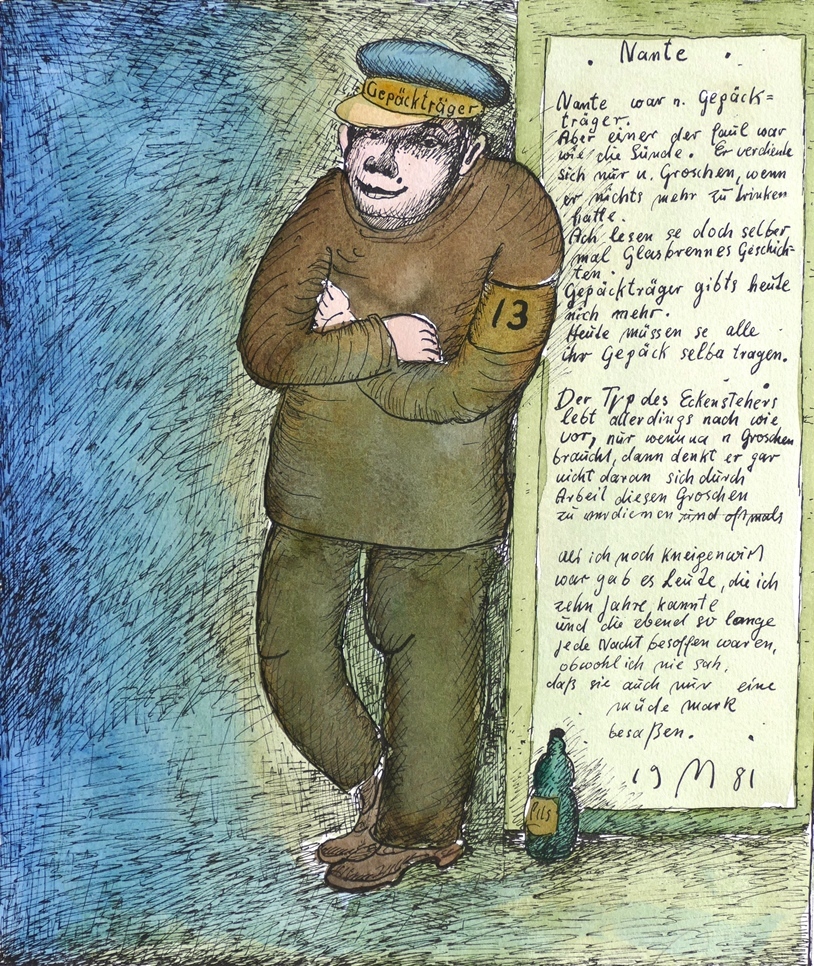 Gepäckträger
13
Pils
. Nante .
Nante war n. Gepäck=
träger.
Aber einer der faul war
wie die Sünde. Er verdiente
sich nur n. Groschen, wenn
er nichts mehr zu trinken
hatte.
Ach lesen se doch selber
mal Glasbrennes Geschich-
ten.
Gepäckträger gibts heute
nich mehr.
Heute müssen se alle
ihr Gepäck selba tragen.
Der Typ des Eckenstehers
lebt allerdings nach wie
vor, nur wenna n Groschen
braucht, dann denkt er gar
nicht daran sich durch
Arbeit diesen Groschen
zu verdienen und oftmals
als ich noch Kneipenwirt
war gab es Leute, die ich
zehn Jahre kannte
und die ebend so lange
jede Nacht besoffen waren,
obwohl ich nie sah,
daß sie auch nur eine
müde mark
besaßen.
19 M 81